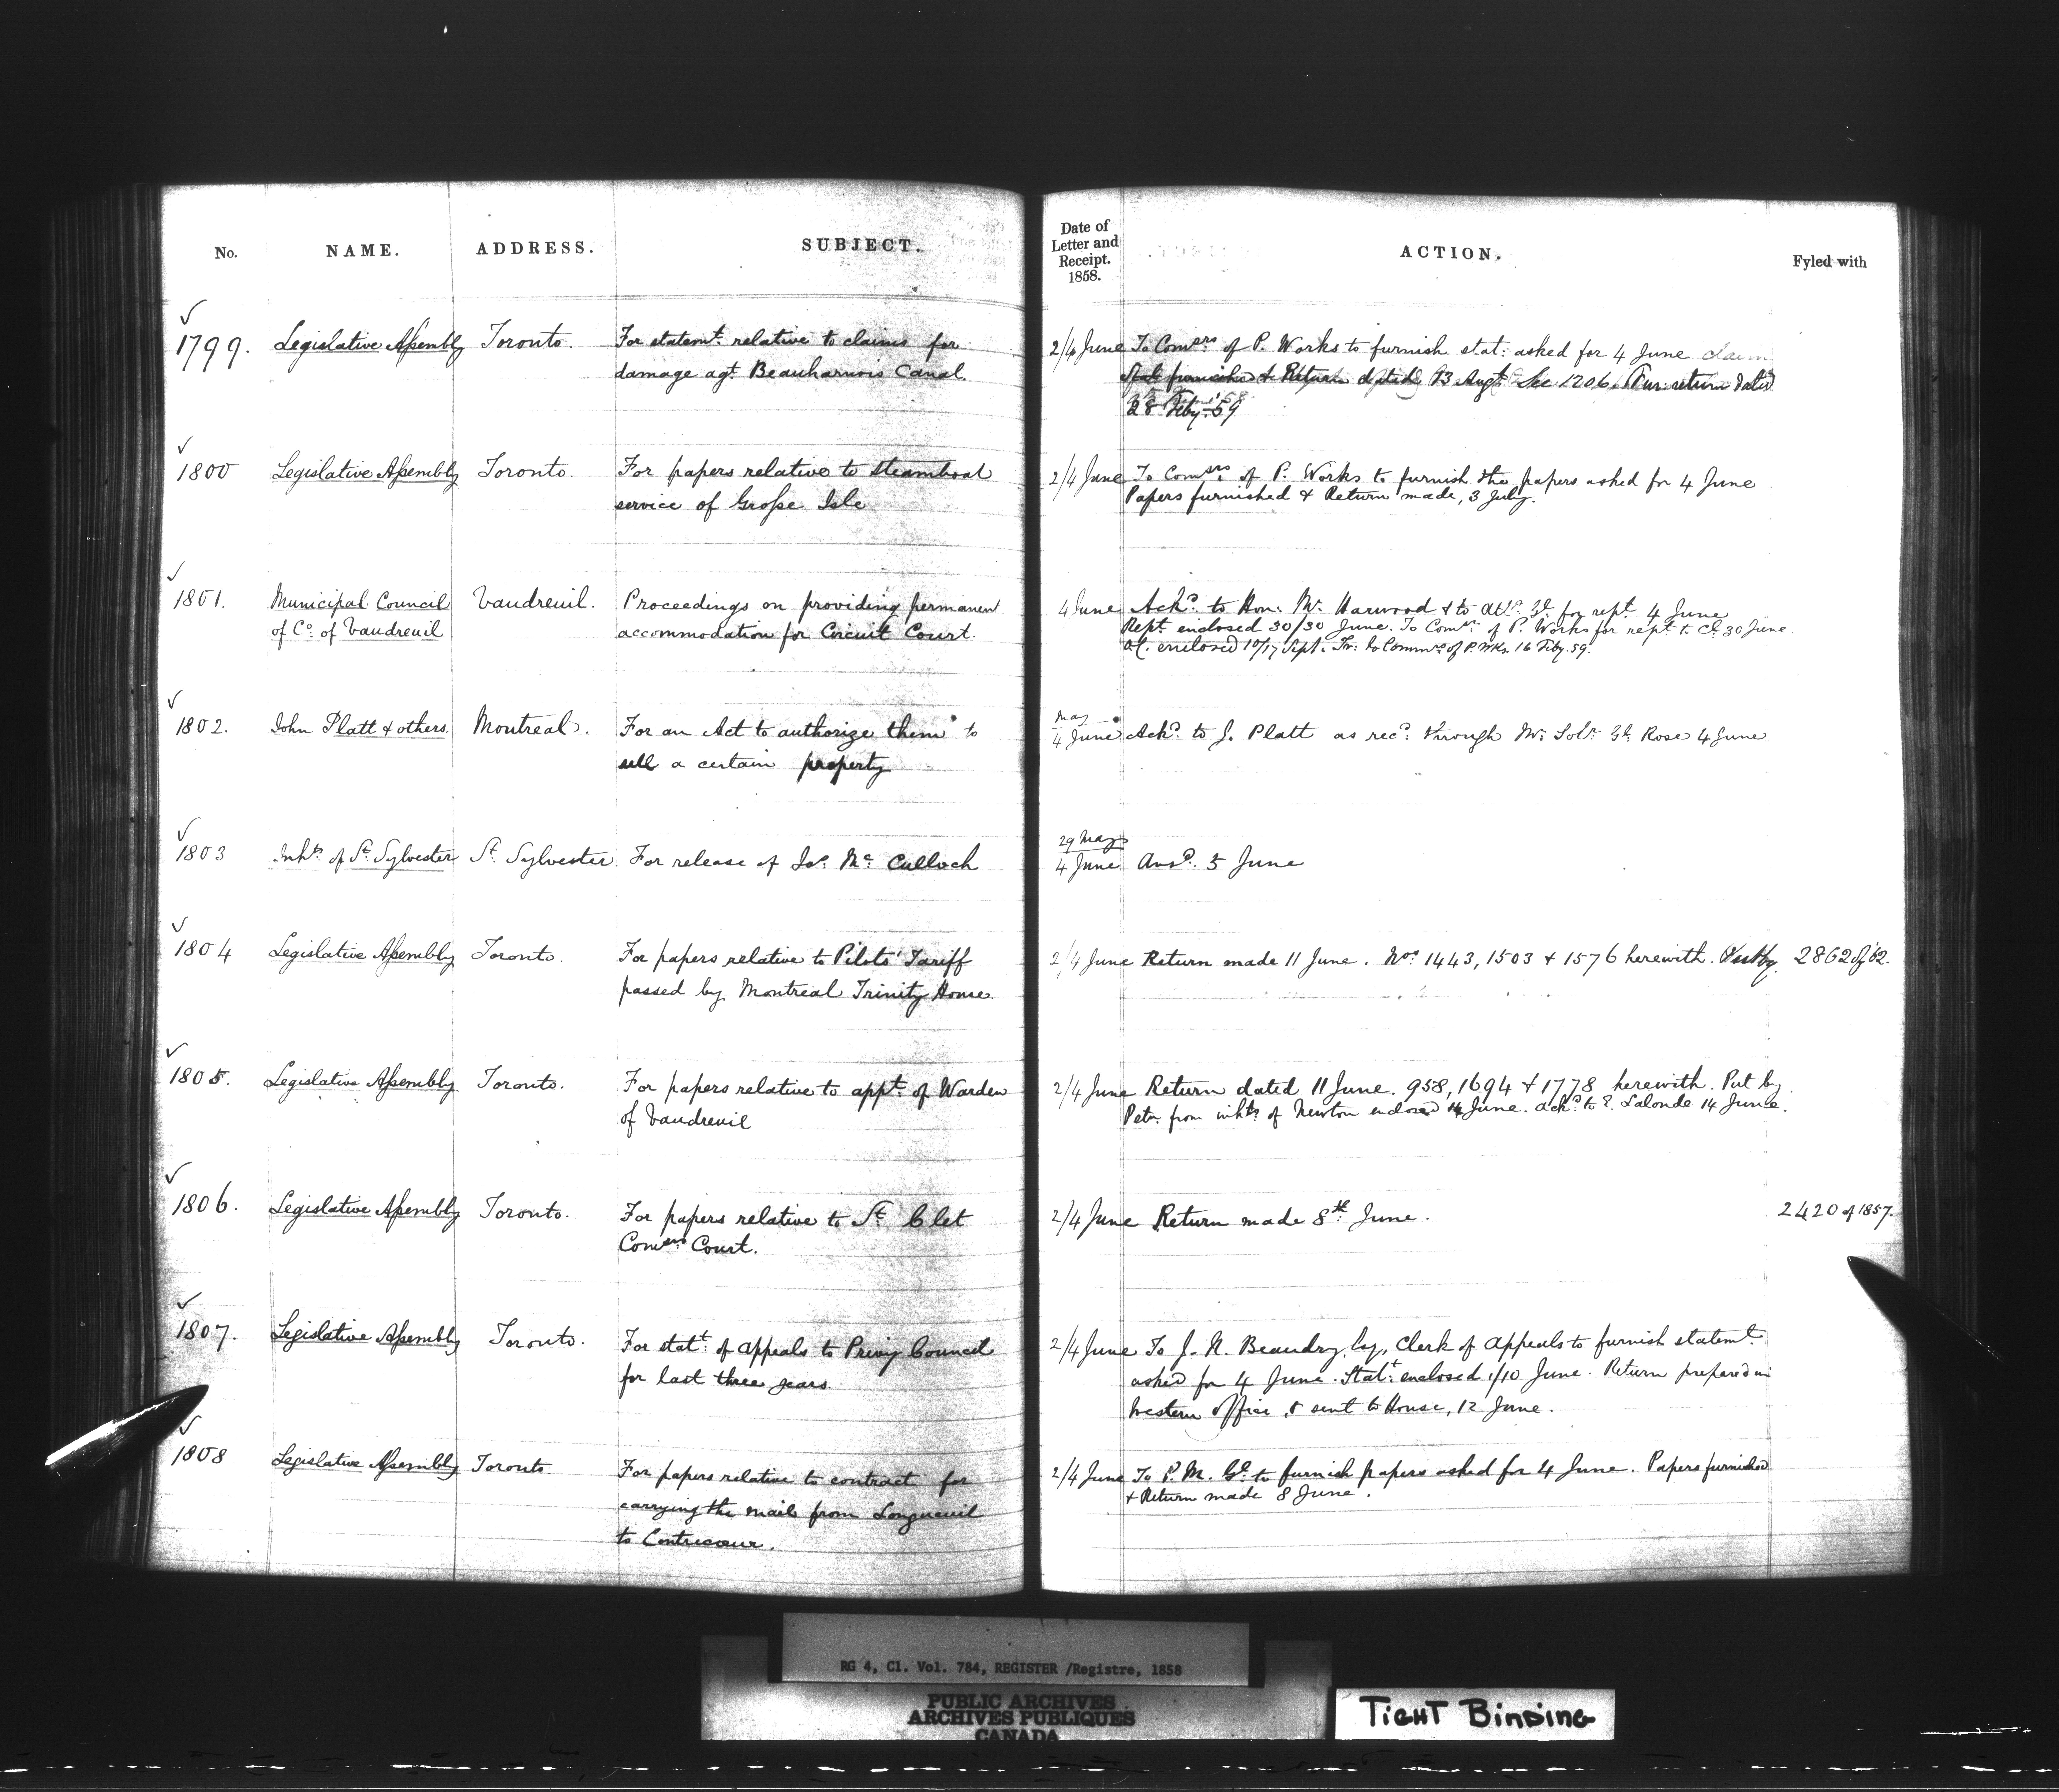 No. NAME. ADDRESS. SUBJECT.
Date of
Letter and
Receipt.
1858.
ACTION.
Fyled with
1799. Legislative Assembly Toronto. For statemt. relative to claims for
damage agt. Beauharnois Canal.
2/4 June To Comsrs. of P. Works to furnish stat: asked for 4 June
Stat furnished & Return dated 13 Augt. See 1206. Fur: return dated
28 Feby. 59
1800 Legislative Assembly Toronto. For papers relative to steamboat
service of Grosse Isle
2/4 June To Comsrs. of P. Works to furnish the papers asked for 4 June
Papers furnished & Return made, 3 July.
1801. Municipal Council Vaudreuil. Proceedings on providing permanent
of Co. of Vaudreuil accommodation for Circuit Court.
4 June Ackd. to Hon: Mr. Harwood & to Atty. Gl. for rept. 4 June
Rept. enclosed 30/30 June. To Comsr. of P. Works for rept. 30 June.
enclosed 10/17 Sept. To Commrs. of P. Wks. 16 Feby. 59.
1802. John Platt & others. Montreal. For an Act to authorize them to
sell a certain property
May
4 June Ackd. to J. Platt as recd. through Mr. Solr. Gl. Rose 4 June
1803 Inhts. of St. Sylvester St. Sylvester. For release of Jas. Mc. Culloch
29 May
4 June Ansd. 5 June
1804 Legislative Assembly Toronto. For papers relative to Pilots' Tariff
passed by Montreal Trinity House.
2/4 June Return made 11 June. Nos. 1443, 1503 & 1576 herewith. Put by. 2862 of '62.
1805. Legislative Assembly Toronto. For papers relative to appt. of Warden
of Vaudreuil
2/4 June Return dated 11 June. 958, 1694 & 1778 herewith. Put by.
Petn. from inhts. of Newton enclosed 14 June. Ackd. to E. Lalonde 14 June.
1806. Legislative Assembly Toronto. For papers relative to St. Clet
Comsrs. Court.
2/4 June Return made 8th. June.
2420 of 1857.
1807. Legislative Assembly Toronto. For statt. of appeals to Privy Council
for last three years.
2/4 June To J. N. Beaudry, Esq., Clerk of Appeals to furnish statemt.
asked for 4 June. Statt. enclosed 1/10 June. Return prepared in
Western Office, & sent to House, 12 June.
1808 Legislative Assembly Toronto. For papers relative to contract for
carrying the mail from Longueuil
to Contrecoeur.
2/4 June To P. M. Gl. to furnish papers asked for 4 June. Papers furnished
& Return made 8 June.
RG 4, C1. Vol. 784, REGISTER /Registre, 1858
PUBLIC ARCHIVES
ARCHIVES PUBLIQUES
CANADA
TIGHT BINDING